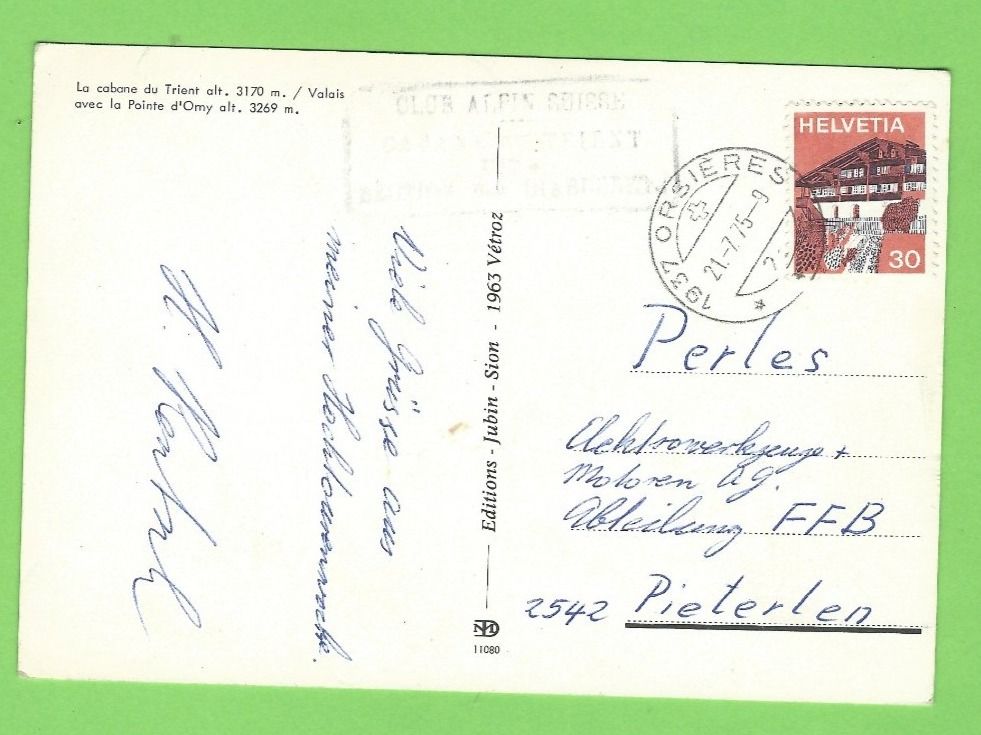 La cabane du Trient alt. 3170 m. / Valais
avec la Pointe d'Orny alt. 3269 m.
CLUB ALPIN SUISSE
HELVETIA
30
1937 ORSIÈRES
21.-7.75-9
Viele Grüsse aus
meiner Hochtourenwoche.
H.
Editions - Jubin - Sion - 1963 Vétroz
11080
Perles
Elektrowerkzeuge +
Motoren AG.
Abteilung FFB
2542 Pieterlen